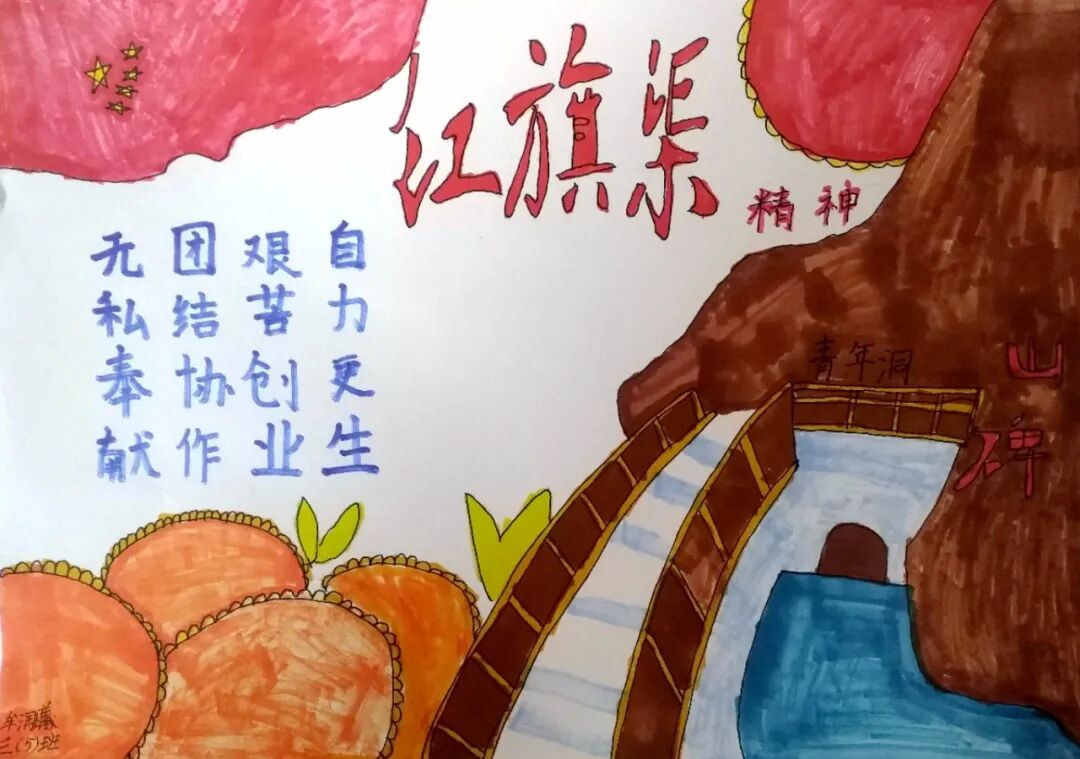 红旗渠
精神
自力更生
艰苦创业
团结协作
无私奉献
青年洞
山碑
三(5)班